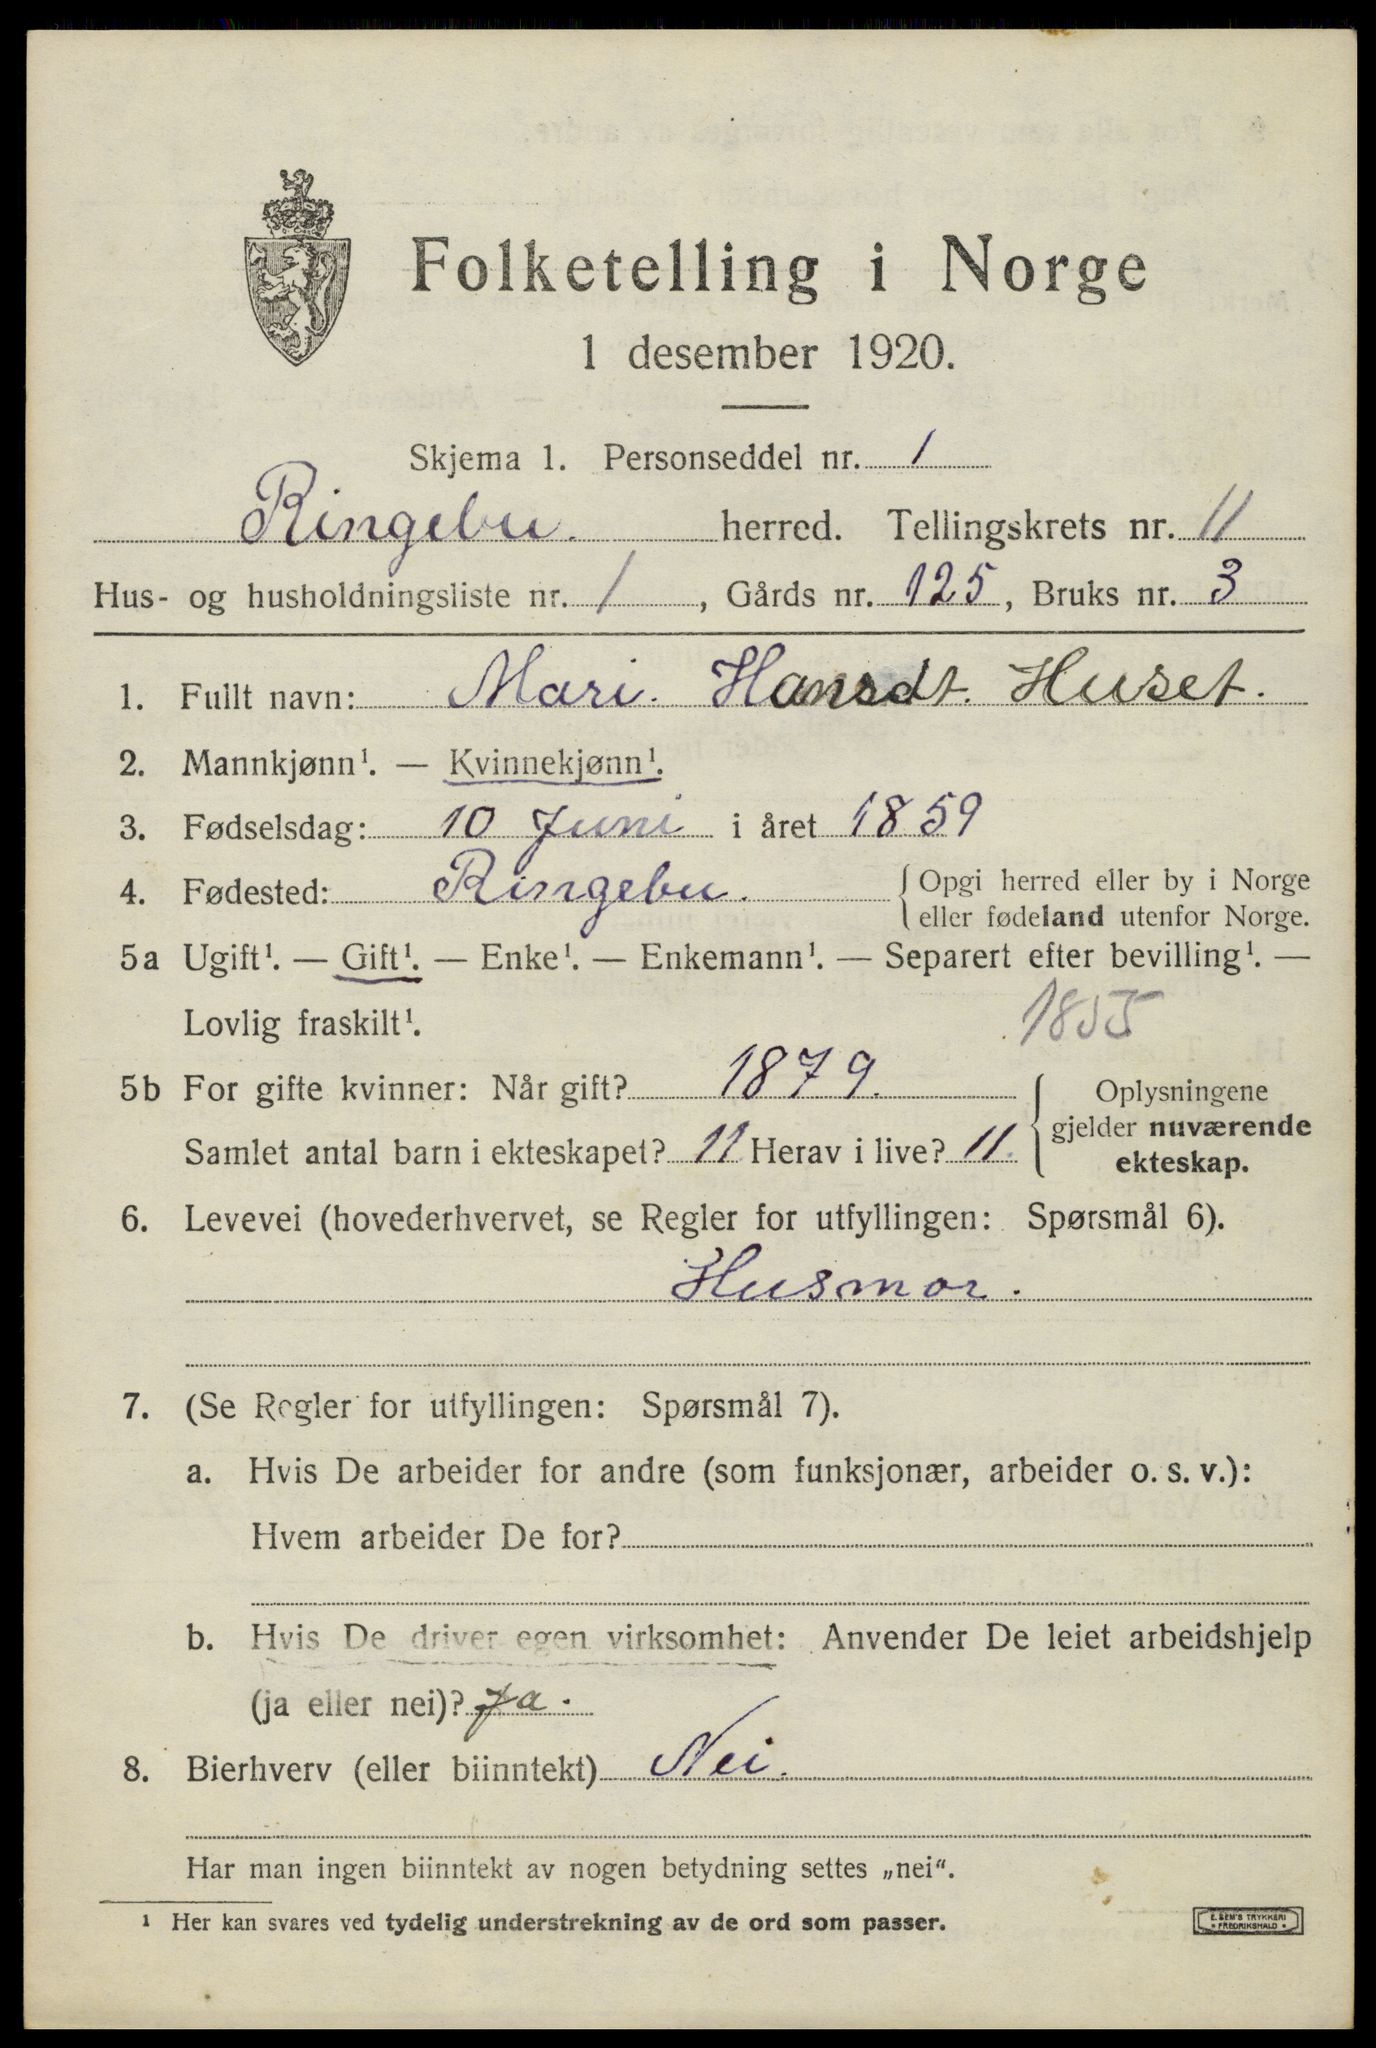 Folketelling i Norge
1 desember 1920.
Skjema 1. Personseddel nr. 1
Ringebu. herred. Tellingskrets nr. 11
Hus- og husholdningsliste nr. 1, Gårds nr. 125, Bruks nr. 3
1. Fullt navn: Mari. Hansdt. Huset.
2. Mannkjønn¹. — Kvinnekjønn¹.
3. Fødselsdag: 10 Juni i året 1859
4. Fødested: Ringebu. { Opgi herred eller by i Norge
eller fødeland utenfor Norge.
5a Ugift¹. — Gift¹. — Enke¹. — Enkemann¹. — Separert efter bevilling¹. —
Lovlig fraskilt¹. 1855
5b For gifte kvinner: Når gift? 1879. { Oplysningene
gjelder nuværende
Samlet antal barn i ekteskapet? 11 Herav i live? 11. ekteskap.
6. Levevei (hovederhvervet, se Regler for utfyllingen: Spørsmål 6).
Husmor.
7. (Se Regler for utfyllingen: Spørsmål 7).
a. Hvis De arbeider for andre (som funksjonær, arbeider o. s. v.):
Hvem arbeider De for?
b. Hvis De driver egen virksomhet: Anvender De leiet arbeidshjelp
(ja eller nei)? Ja.
8. Bierhverv (eller biinntekt) Nei.
Har man ingen biinntekt av nogen betydning settes „nei“.
¹ Her kan svares ved tydelig understrekning av de ord som passer.
E. SEM'S TRYKKERI
• FREDRIKSHALD •